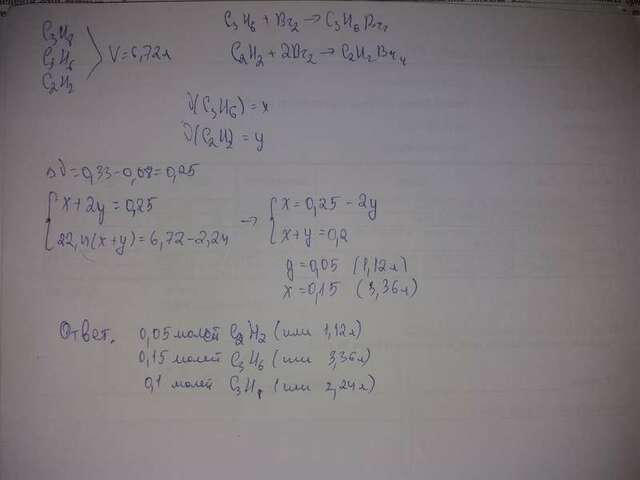 C₃H₈
C₃H₆
C₂H₂
V=6,72л
C₃H₆ + Br₂ → C₃H₆Br₂
C₂H₂ + 2Br₂ → C₂H₂Br₄
ν(C₃H₆) = x
ν(C₂H₂) = y
Δν = 0,33 - 0,08 = 0,25
x + 2y = 0,25
22,4(x+y) = 6,72 - 2,24
→
x = 0,25 - 2y
x + y = 0,2
y = 0,05 (1,12л)
x = 0,15 (3,36л)
Ответ. 0,05 молей C₂H₂ (или 1,12л)
0,15 молей C₃H₆ (или 3,36л)
0,1 молей C₃H₈ (или 2,24л)